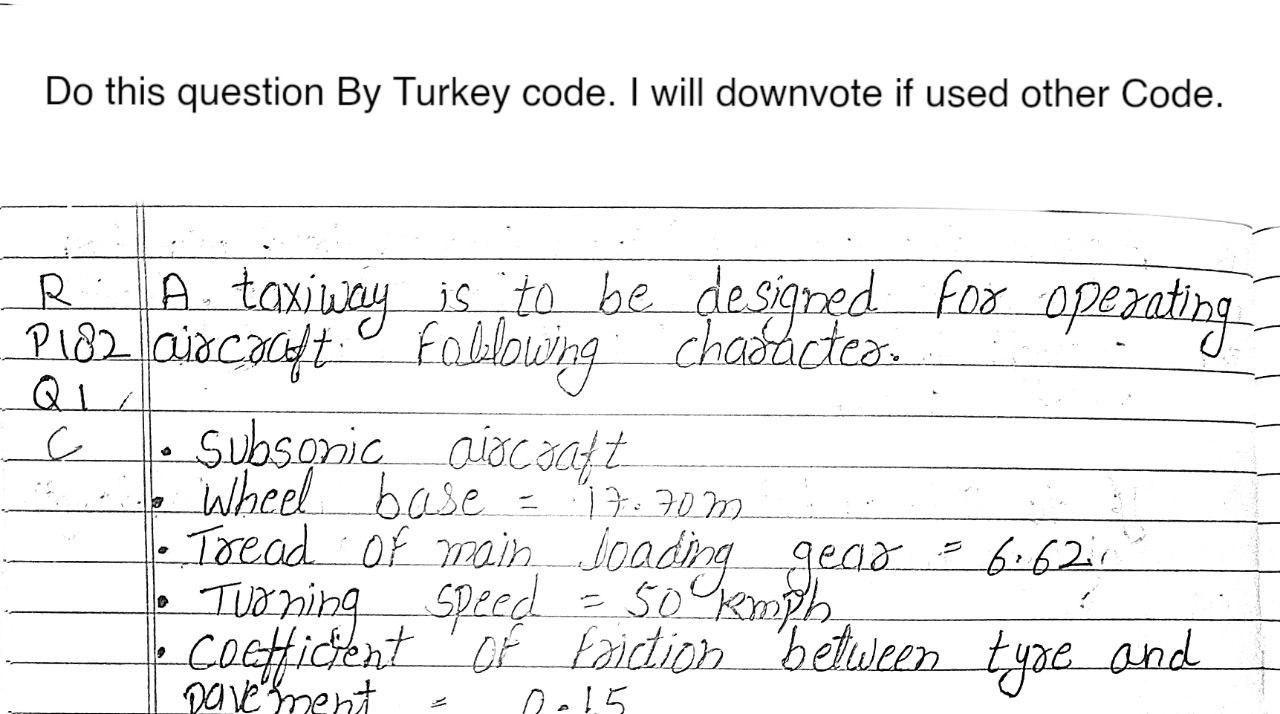 Do this question By Turkey code. I will downvote if used other Code.
R A taxiway is to be designed for operating
P182 aircraft. Following character.
Q1
C • Subsonic aircraft
• Wheel base = 17.70m
• Tread of main loading gear = 6.62
• Turning speed = 50 kmph
• Coefficient of friction between tyre and
pavement = 0.15